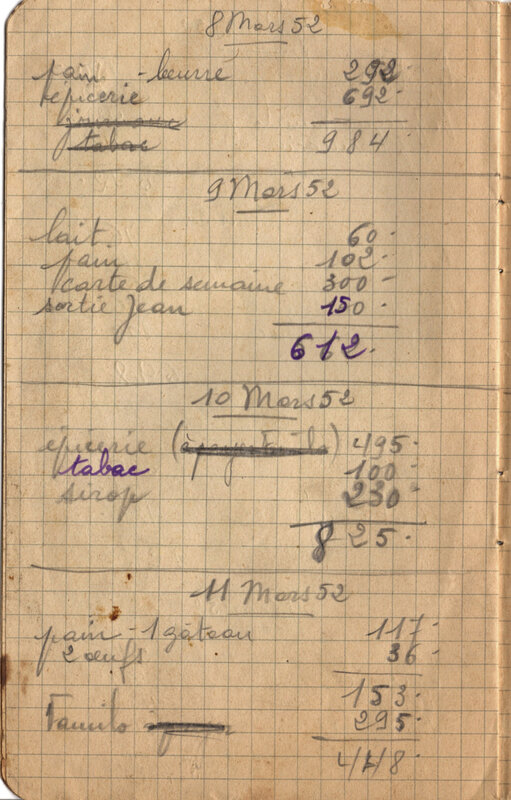 8 Mars 52
pain - beurre 292
épicerie 692
tabac
984
9 Mars 52
lait 60
pain 102
carte de semaine 300
sortie Jean 150
612
10 Mars 52
épicerie ( ) 495
tabac 100
sirop 230
825
11 Mars 52
pain - 1 gâteau 117
2 œufs 36
153
Familo 295
448